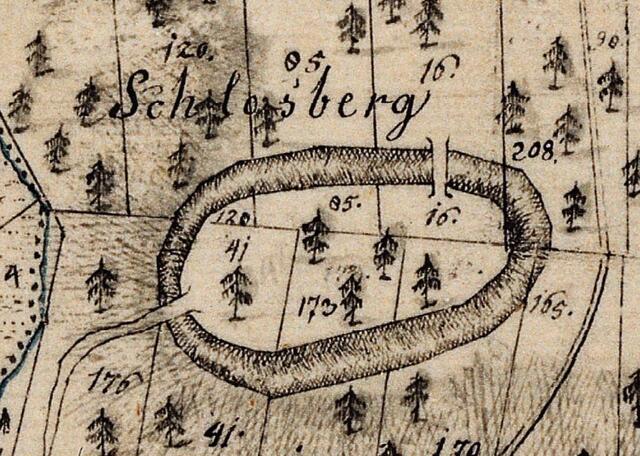 90
120. 05. 16.
Schlosberg
208.
120 05. 16.
41
4
173
165.
176
41. 170